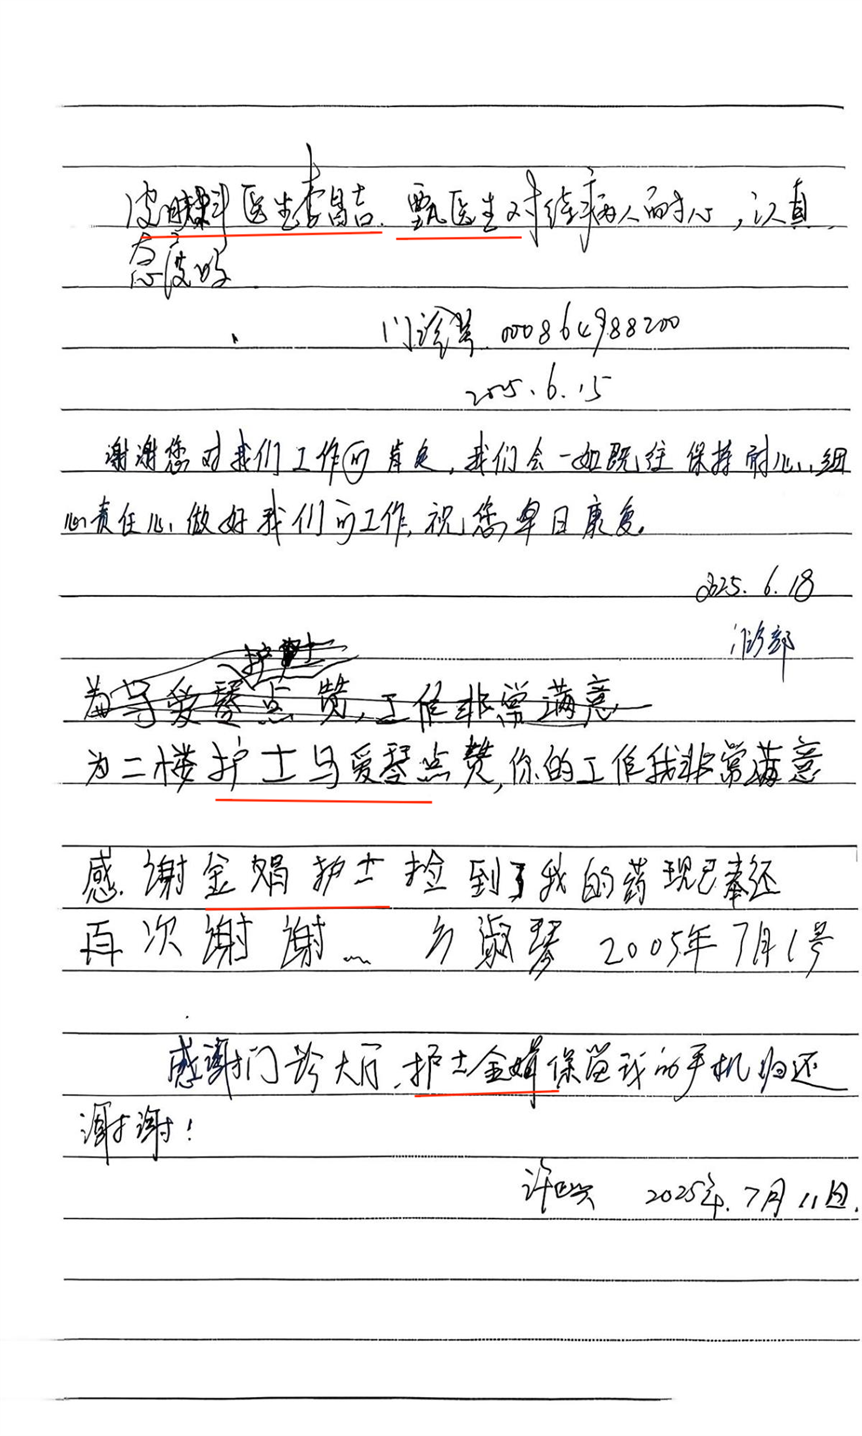 皮肤科医生李昌吉. 甄医生对待病人耐心,认真,
态度好.
门诊号 000864988200
2025.6.15
谢谢您对我们工作的肯定,我们会一如既往保持耐心、细
心责任心,做好我们的工作,祝您早日康复.
2025.6.18
门诊部
护士
为马爱琴点赞,工作非常满意
为二楼护士马爱琴点赞,你的工作我非常满意
感谢金娟护士捡到了我的药现已奉还
再次谢谢… 淑琴 2005年7月1号
感谢门诊大厅,护士金娟保管我的手机归还
谢谢!
许 2025年.7月11日.